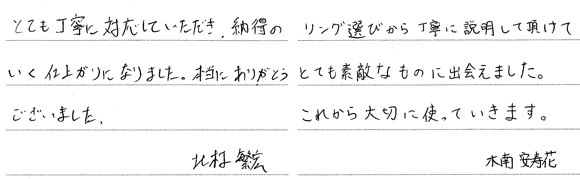 とても丁寧に対応していただき、納得の
いく仕上がりになりました。本当にありがとう
ございました。
北村 繁宏
リング選びから丁寧に説明して頂けて
とても素敵なものに出会えました。
これから大切に使っていきます。
木南 安寿花